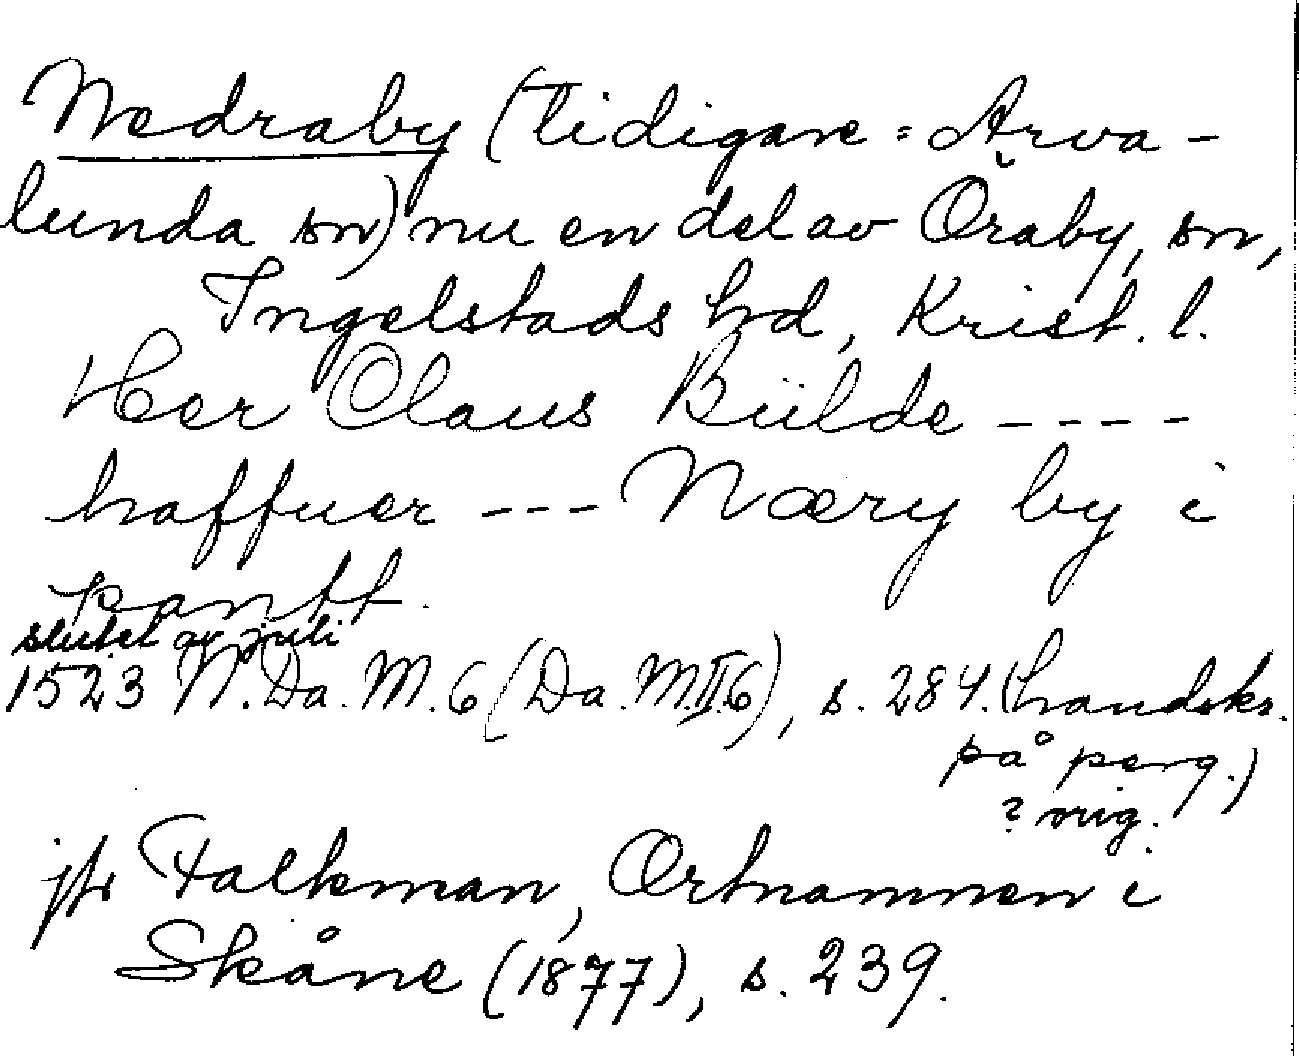 Nedraby (tidigare = Arva-
lunda sn) nu en del av Öraby, sn,
Ingelstads hd, Krist. l.
Her Claus Biilde ----
haffuer --- Næry by i
pantt.
slutet av juli
1523 N. Da. M. 6 (Da. M. II 6), s. 284. (handskr.
på perg.)
? orig.
jfr Falkman, Ortnamnen i
Skåne (1877), s. 239.